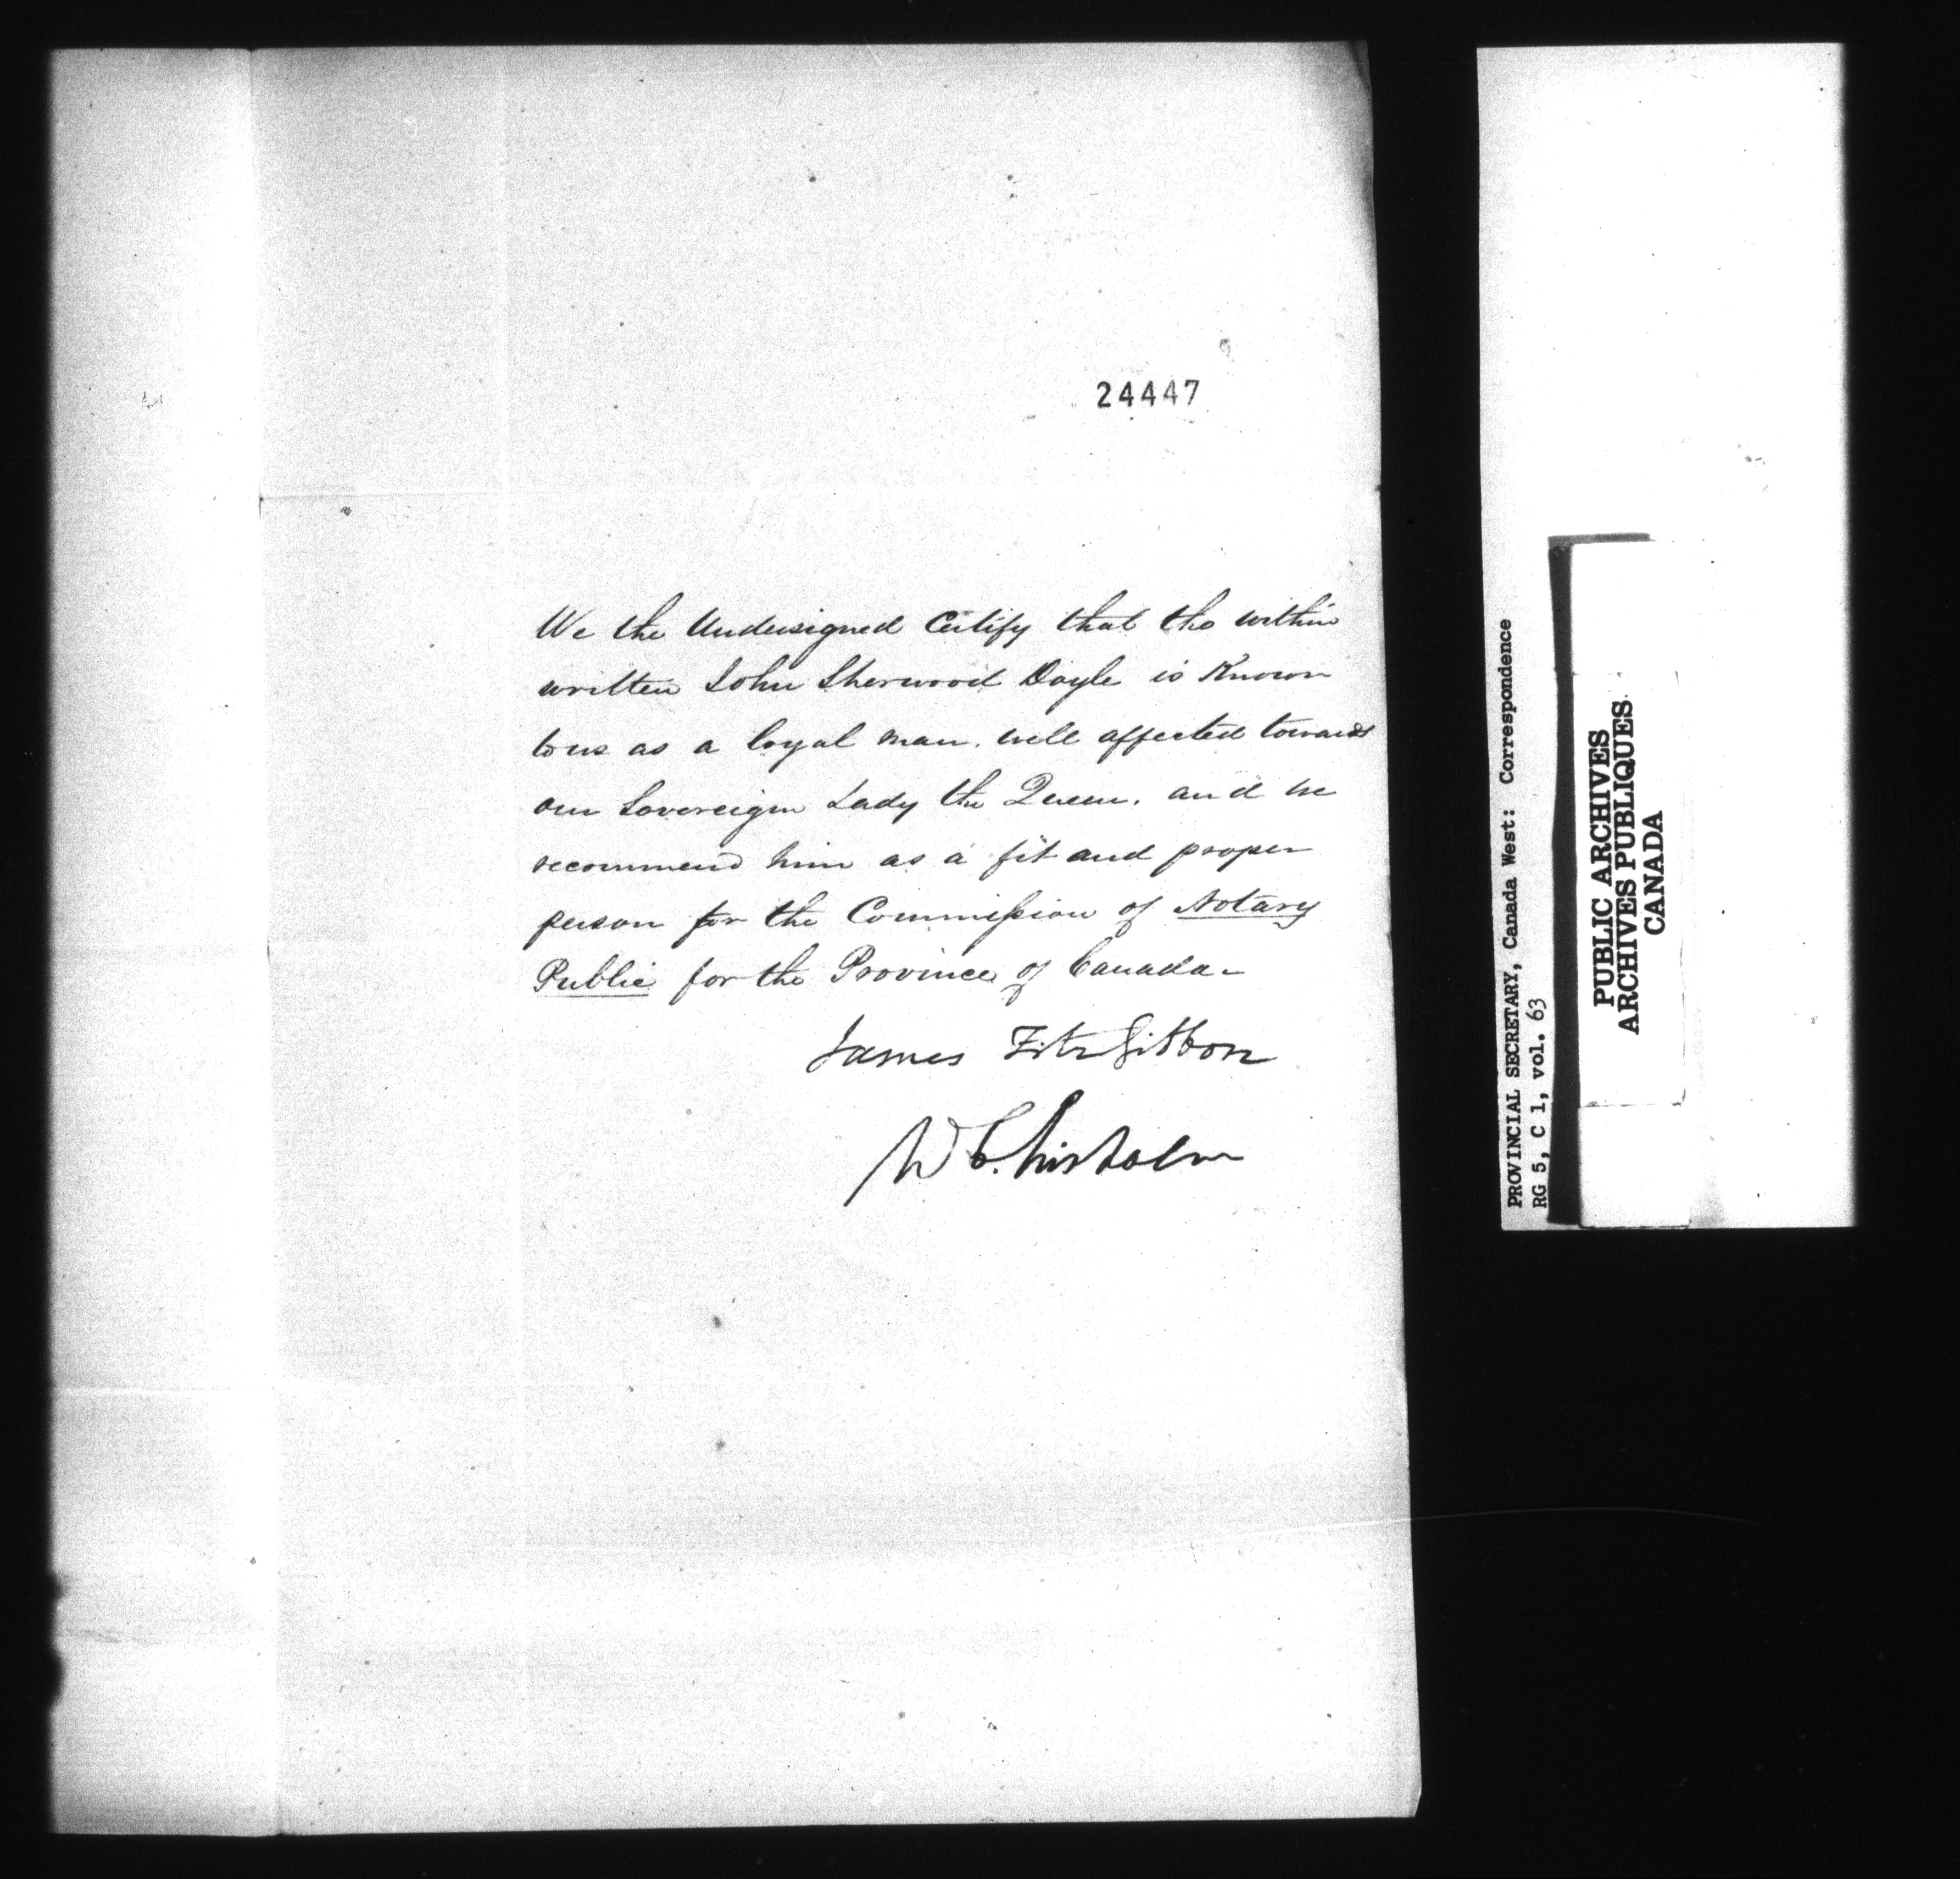 24447
We the Undersigned Certify that the within
written John Sherwood Doyle is Known
to us as a loyal man. well affected towards
our Sovereign Lady the Queen. and we
recommend him as a fit and proper
person for the Commission of Notary
Public for the Province of Canada-
James FitzGibbon
W Chisholm
PROVINCIAL SECRETARY, Canada West: Correspondence
RG 5, C 1, vol. 63
PUBLIC ARCHIVES
ARCHIVES PUBLIQUES
CANADA